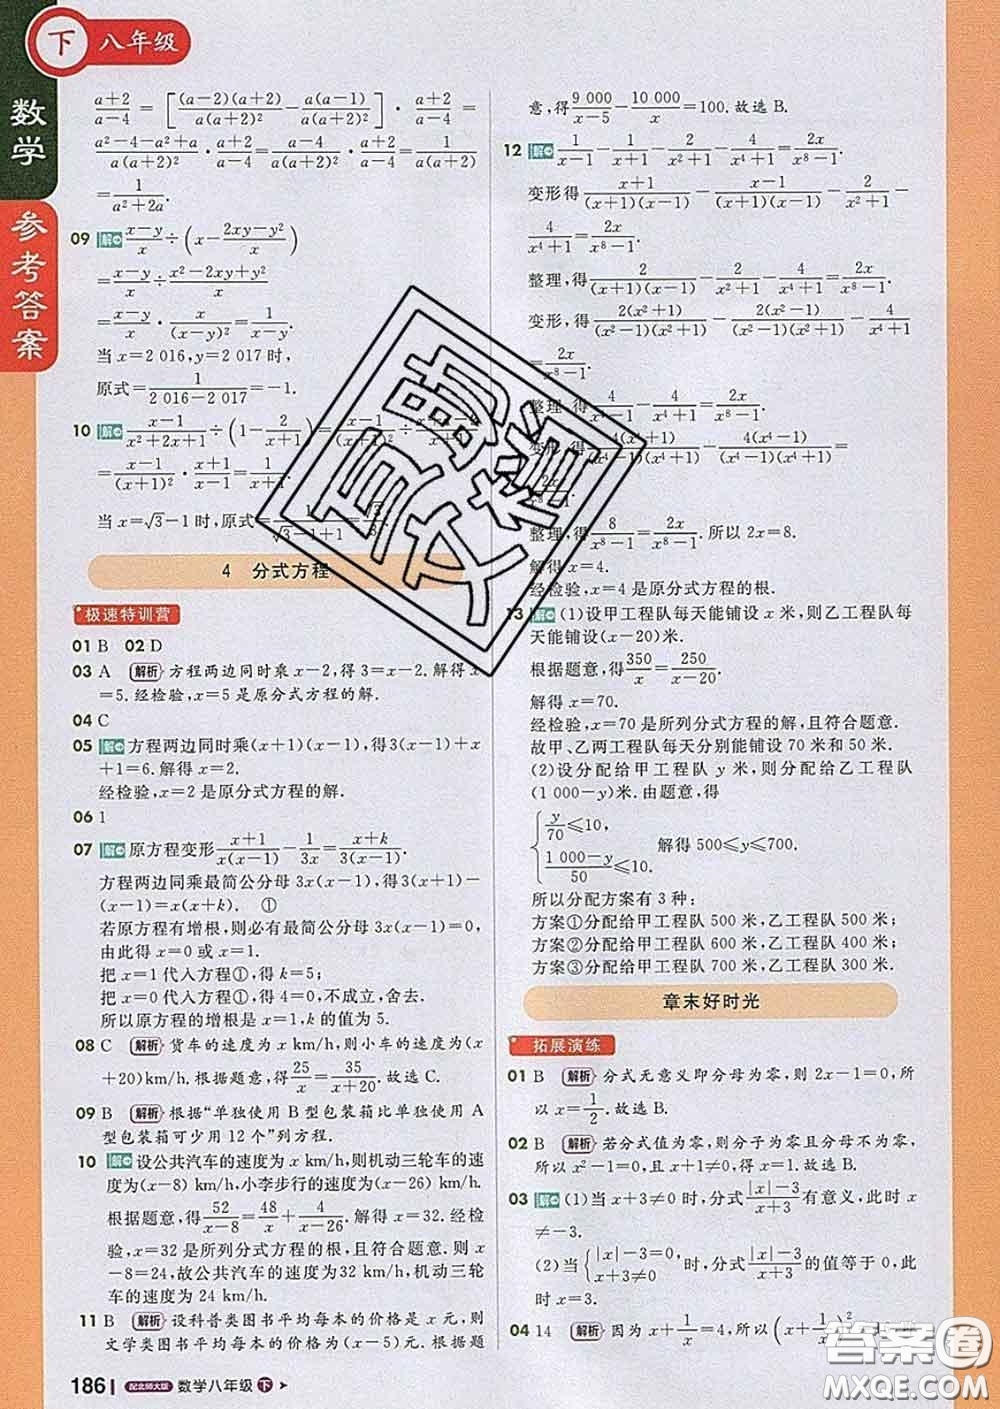 下 八年级
数学
参考答案
(a+2)/(a−4) = [((a−2)(a+2))/(a(a+2)²) − (a(a−1))/(a(a+2)²)] · (a+2)/(a−4) =
(a²−4−a²+a)/(a(a+2)²) · (a+2)/(a−4) = (a−4)/(a(a+2)²) · (a+2)/(a−4) = 1/(a(a+2))
= 1/(a²+2a).
09 解 (x−y)/x ÷ (x − (2xy−y²)/x)
= (x−y)/x ÷ (x²−2xy+y²)/x
= (x−y)/x · x/(x−y)² = 1/(x−y).
当 x=2 016,y=2 017 时,
原式= 1/(2 016−2 017) =−1.
10 解 (x−1)/(x²+2x+1) ÷ (1 − 2/(x+1)) = (x−1)/(x+1)² ÷
= (x−1)/(x+1)² · (x+1)/(x−1) = 1/(x+1).
当 x=√3−1 时,原式= 1/(√3−1+1) = √3/3.
4 分式方程
极速特训营
01 B 02 D
03 A 解析 方程两边同时乘 x−2,得 3=x−2. 解得 x
=5. 经检验,x=5 是原分式方程的解.
04 C
05 解 方程两边同时乘(x+1)(x−1),得 3(x−1)+x
+1=6. 解得 x=2.
经检验,x=2 是原分式方程的解.
06 1
07 解 原方程变形 (x+1)/(x(x−1)) − 1/(3x) = (x+k)/(3(x−1)).
方程两边同乘最简公分母 3x(x−1),得 3(x+1)−
(x−1)=x(x+k). ①
若原方程有增根,则必有最简公分母 3x(x−1)=0,
由此得 x=0 或 x=1.
把 x=1 代入方程①,得 k=5;
把 x=0 代入方程①,得 4=0,不成立,舍去.
所以原方程的增根是 x=1,k 的值为 5.
08 C 解析 货车的速度为 x km/h,则小车的速度为(x
+20)km/h. 根据题意,得 25/x = 35/(x+20). 故选 C.
09 B 解析 根据“单独使用 B 型包装箱比单独使用 A
型包装箱可少用 12 个”列方程.
10 解 设公共汽车的速度为 x km/h,则机动三轮车的速
度为(x−8) km/h,小李步行的速度为(x−26) km/h.
根据题意,得 52/(x−8) = 48/x + 4/(x−26). 解得 x=32. 经检
验,x=32 是所列分式方程的解,且符合题意. 而 x
−8=24,故公共汽车的速度为32 km/h,机动三轮
车的速度为 24 km/h.
11 B 解析 设科普类图书平均每本的价格是 x 元,则
文学类图书平均每本的价格为(x−5)元. 根据题
意,得 9 000/(x−5) − 10 000/x = 100. 故选 B.
12 解 1/(x−1) − 1/(x+1) − 2/(x²+1) − 4/(x⁴+1) = 2x/(x⁸−1).
变形得 (x+1)/((x+1)(x−1)) − (x−1)/((x+1)(x−1)) − 2/(x²+1) −
4/(x⁴+1) = 2x/(x⁸−1).
整理,得 2/((x+1)(x−1)) − 2/(x²+1) − 4/(x⁴+1) = 2x/(x⁸−1).
变形,得 2(x²+1)/((x²−1)(x²+1)) − 2(x²−1)/((x²−1)(x²+1)) − 4/(x⁴+1)
= 2x/(x⁸−1).
整理,得 4/(x⁴−1) − 4/(x⁴+1) = 2x/(x⁸−1).
变形,得 4(x⁴+1)/((x⁴−1)(x⁴+1)) − 4(x⁴−1)/((x⁴−1)(x⁴+1)) =
2x/(x⁸−1).
整理,得 8/(x⁸−1) = 2x/(x⁸−1). 所以 2x=8.
解得 x=4.
经检验,x=4 是原方程的根.
13 解 (1)设甲工程队每天能铺设 x 米,则乙工程队每
天能铺设(x−20)米.
根据题意,得 350/x = 250/(x−20).
解得 x=70.
经检验,x=70 是所列分式方程的解,且符合题意.
故甲、乙两工程队每天分别能铺设 70 米和 50 米.
(2)设分配给甲工程队 y 米,则分配给乙工程队
(1 000−y)米. 由题意,得
{ y/70 ≤10, (1 000−y)/50 ≤10, 解得 500≤y≤700.
所以分配方案有 3 种:
方案①分配给甲工程队 500 米,乙工程队 500 米;
方案②分配给甲工程队 600 米,乙工程队 400 米;
方案③分配给甲工程队 700 米,乙工程队 300 米.
章末好时光
拓展演练
01 B 解析 分式无意义即分母为零,则 2x−1=0,所
以 x= 1/2. 故选 B.
02 B 解析 若分式值为零,则分子为零且分母不为零,
所以 x²−1=0 且 x+1≠0,所以 x=1. 故选 B.
03 解 (1)当 x+3≠0 时,分式 (|x|−3)/(x+3) 有意义,此时 x
≠−3.
(2)当 { |x|−3=0, x+3≠0 时,分式 (|x|−3)/(x+3) 的值等于 0,此
时 x=3.
04 14 解析 因为 x+ 1/x =4,所以 (x+ 1/x)²
186 配北师大版 数学八年级 下
答案圈
MXQE.COM